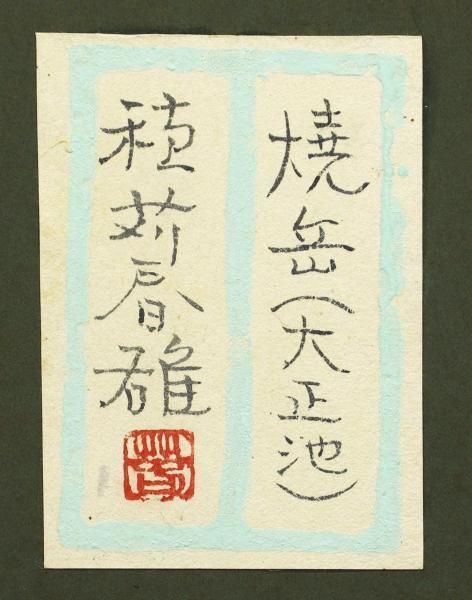 焼岳(大正池)
穂苅春雄